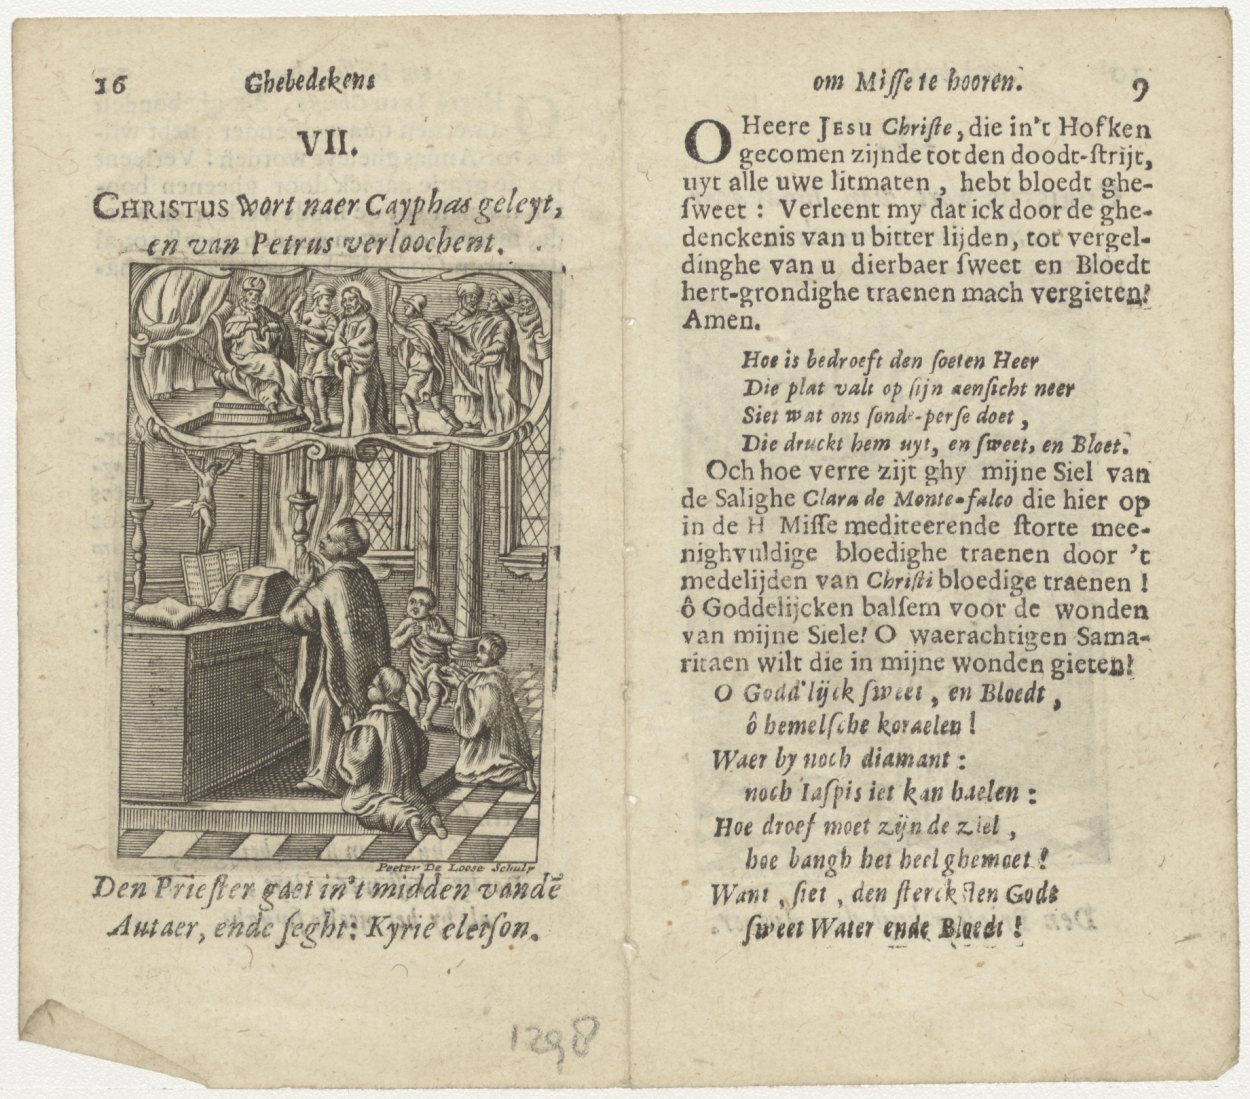 16 Ghebedekens
VII.
CHRISTUS wort naer Cayphas geleyt,
en van Petrus verloochent.
Peeter De Loose Schulp
Den Priester gaet in't midden vandē
Autaer, ende seght: Kyrie eleison.
1298
om Misse te hooren. 9
O Heere JESU Christe, die in't Hofken
gecomen zijnde tot den doodt-strijt,
uyt alle uwe litmaten, hebt bloedt ghe-
sweet: Verleent my dat ick door de ghe-
denckenis van u bitter lijden, tot vergel-
dinghe van u dierbaer sweet en Bloedt
hert-grondighe traenen mach vergieten!
Amen.
Hoe is bedroeft den soeten Heer
Die plat valt op sijn aensicht neer
Siet wat ons sonde-perse doet,
Die druckt hem uyt, en sweet, en Bloet.
Och hoe verre zijt ghy mijne Siel van
de Salighe Clara de Monte-falco die hier op
in de H Misse mediteerende storte mee-
nighvuldige bloedighe traenen door 't
medelijden van Christi bloedige traenen!
ô Goddelijcken balsem voor de wonden
van mijne Siele! O waerachtigen Sama-
ritaen wilt die in mijne wonden gieten!
O Godd'lijck sweet, en Bloedt,
ô hemelsche koraelen!
Waer by noch diamant:
noch Iaspis iet kan haelen:
Hoe droef moet zijn de ziel,
hoe bangh het heel ghemoet!
Want, siet, den stercksten Gods
sweet Water ende Bloedt!